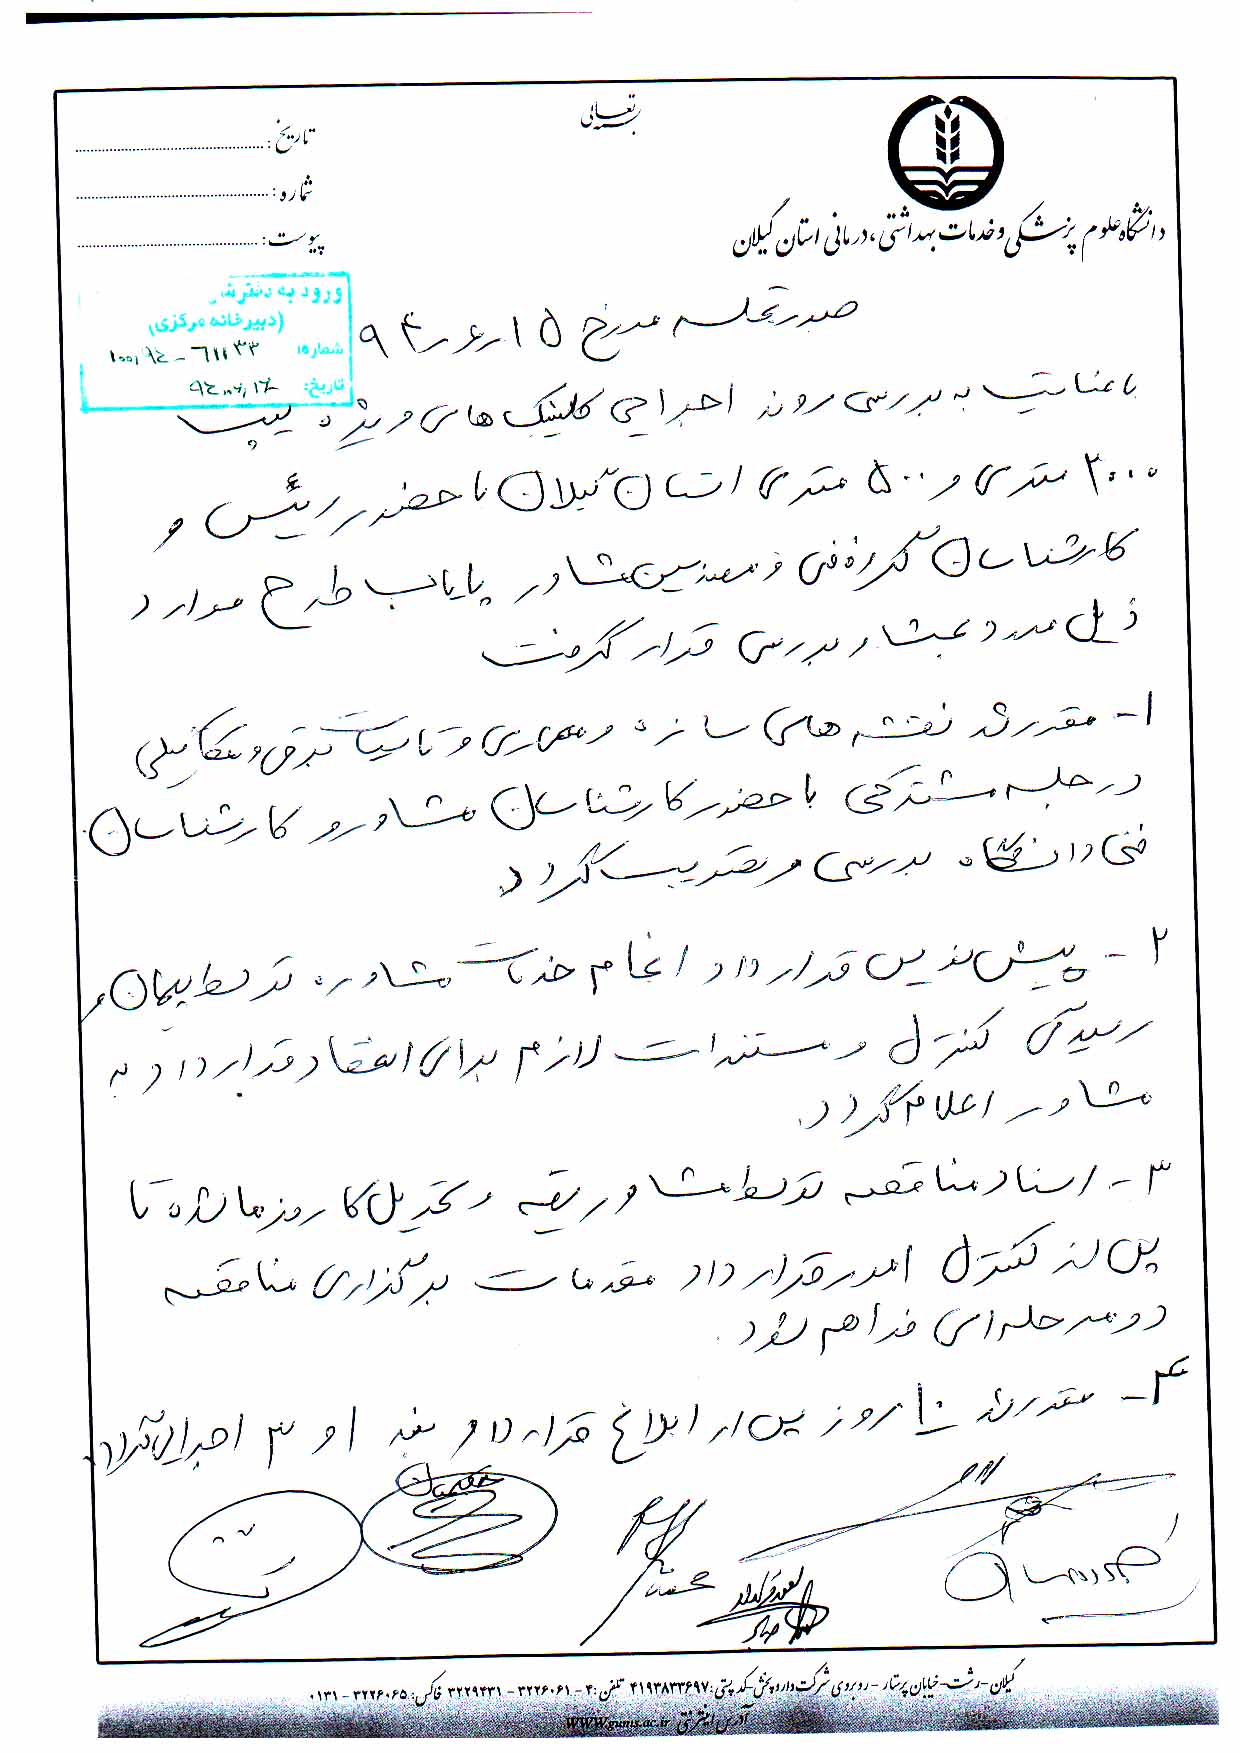 بسمه تعالی
دانشگاه علوم پزشکی و خدمات بهداشتی، درمانی استان گیلان
تاریخ:
شماره:
پیوست:
ورود به دفتر
(دبیرخانه مرکزی)
شماره:
تاریخ:
صورتجلسه مورخ ۱۵ ر ۶ ر ۹۴
با عنایت به بررسی روند اجرایی کلینیک های ویژه تیپ
۲۰۰۰ متری و ۵۰۰ متری استان گیلان با حضور رئیس و
کارشناسان گروه فنی و مهندسین مشاور پایاب طرح موارد
ذیل مورد بحث و بررسی قرار گرفت
۱- مقرر شد نقشه های سازه و معماری و تاسیسات برقی و مکانیکی
در جلسه مشترکی با حضور کارشناسان مشاور و کارشناسان
فنی دانشگاه بررسی و تصویب گردد.
۲- پیش نویس قرارداد انجام خدمات مشاوره توسط پیمان و
رسیدگی کنترل و مستندات لازم برای انعقاد قرارداد به
مشاور اعلام گردد.
۳- اسناد مناقصه توسط مشاور تهیه و تحویل کارفرما شده تا
پس از کنترل امور قرارداد مقدمات برگزاری مناقصه
دو مرحله ای فراهم شود.
۴- مقرر شد ۱۰ روز پس از ابلاغ قرارداد بند ۱ و ۳ اجرایی گردد.
گیلان - رشت - خیابان پرستار - روبروی شرکت دارو پخش - کد پستی: ۴۱۹۳۸۳۳۶۹۷ تلفن: ۴ - ۳۲۲۶۰۶۱ - ۳۲۲۹۴۳۱ فاکس: ۳۲۲۶۰۶۵ - ۰۱۳۱
آدرس اینترنتی www.gums.ac.ir